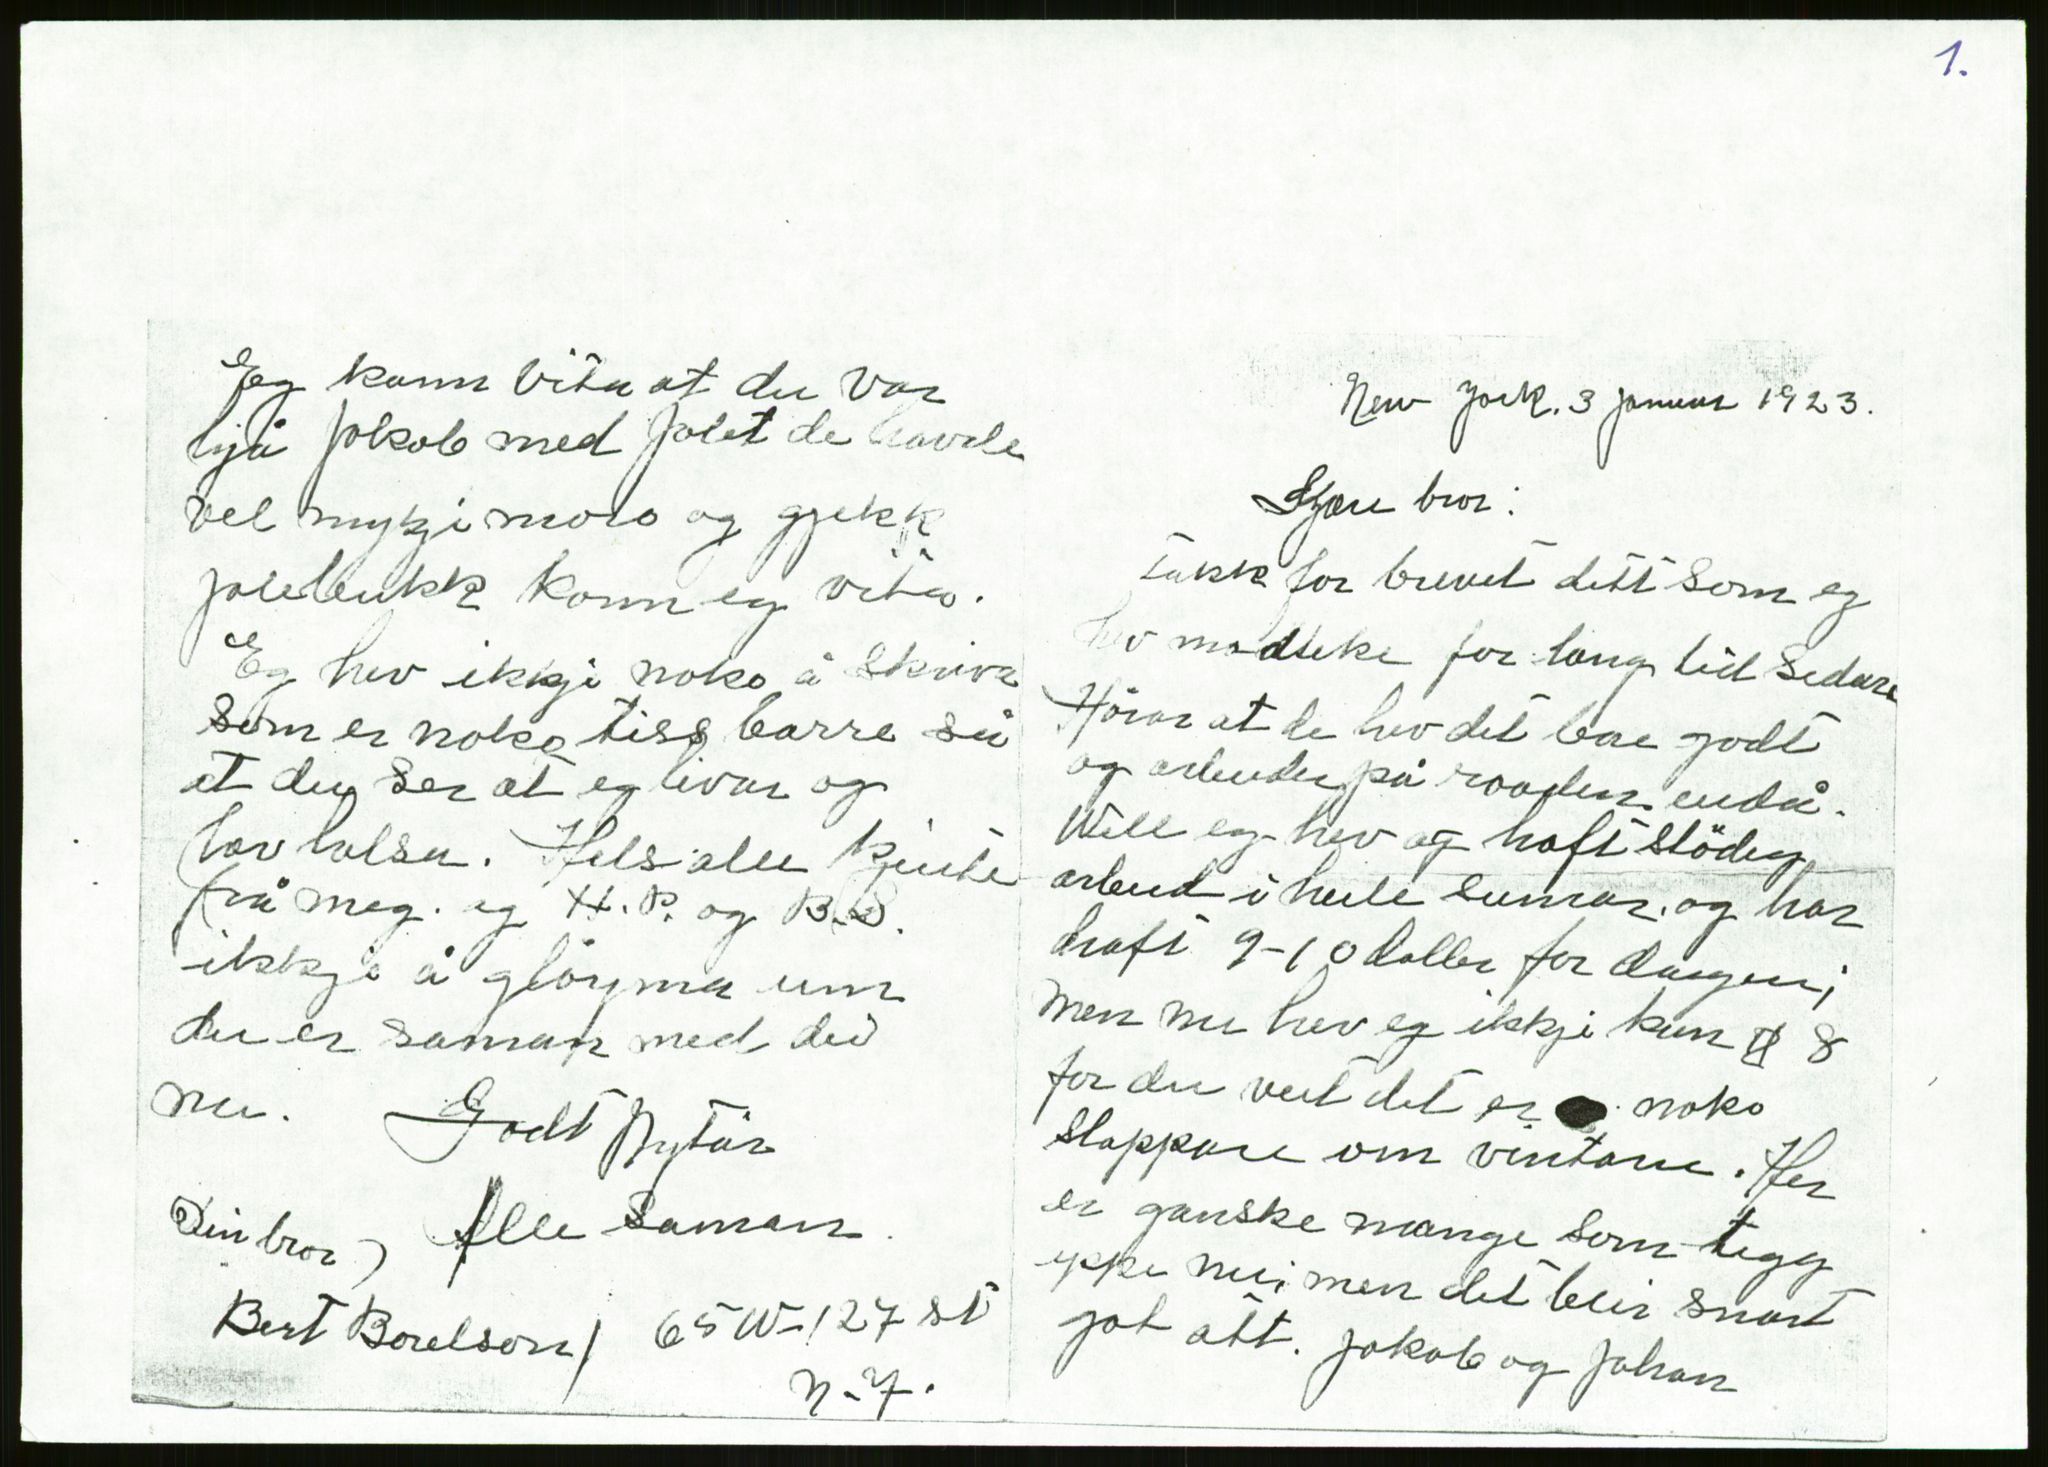 1.
New York. 3 januar 1923.
Kjære bror:
Takk for brevet ditt som eg
hev modteke for lang tid sedan
Hörar at de hev det bare godt
og arbeider på roaden endå.
Well eg hev og haft stödig
arbeid i heile sumar. og har
haft 9-10 doller for dagen;
men nu hev eg ikkji kun 8
for du veit det er noko
slappare om vintaren. Her
er ganske mange som legg
yppe nu; men det bleir snart
job att. Jakob og Johan
Eg kann vita at du var
hjå Jakob med jolet de havde
vel mykji moro og gjekk
jolebukk kann eg vita.
Eg hev ikkji noko å skriva
som er noko tiss barre så
at du ser at eg livar og
hav helsa. Hels alle kjente
frå meg. og H.P. og B.S.
ikkje å glöyma um
du er saman med dei
nu. Godt Nytår
Alle saman.
Din bror,
Bert Borelson / 65 W-127 st
N-Y.